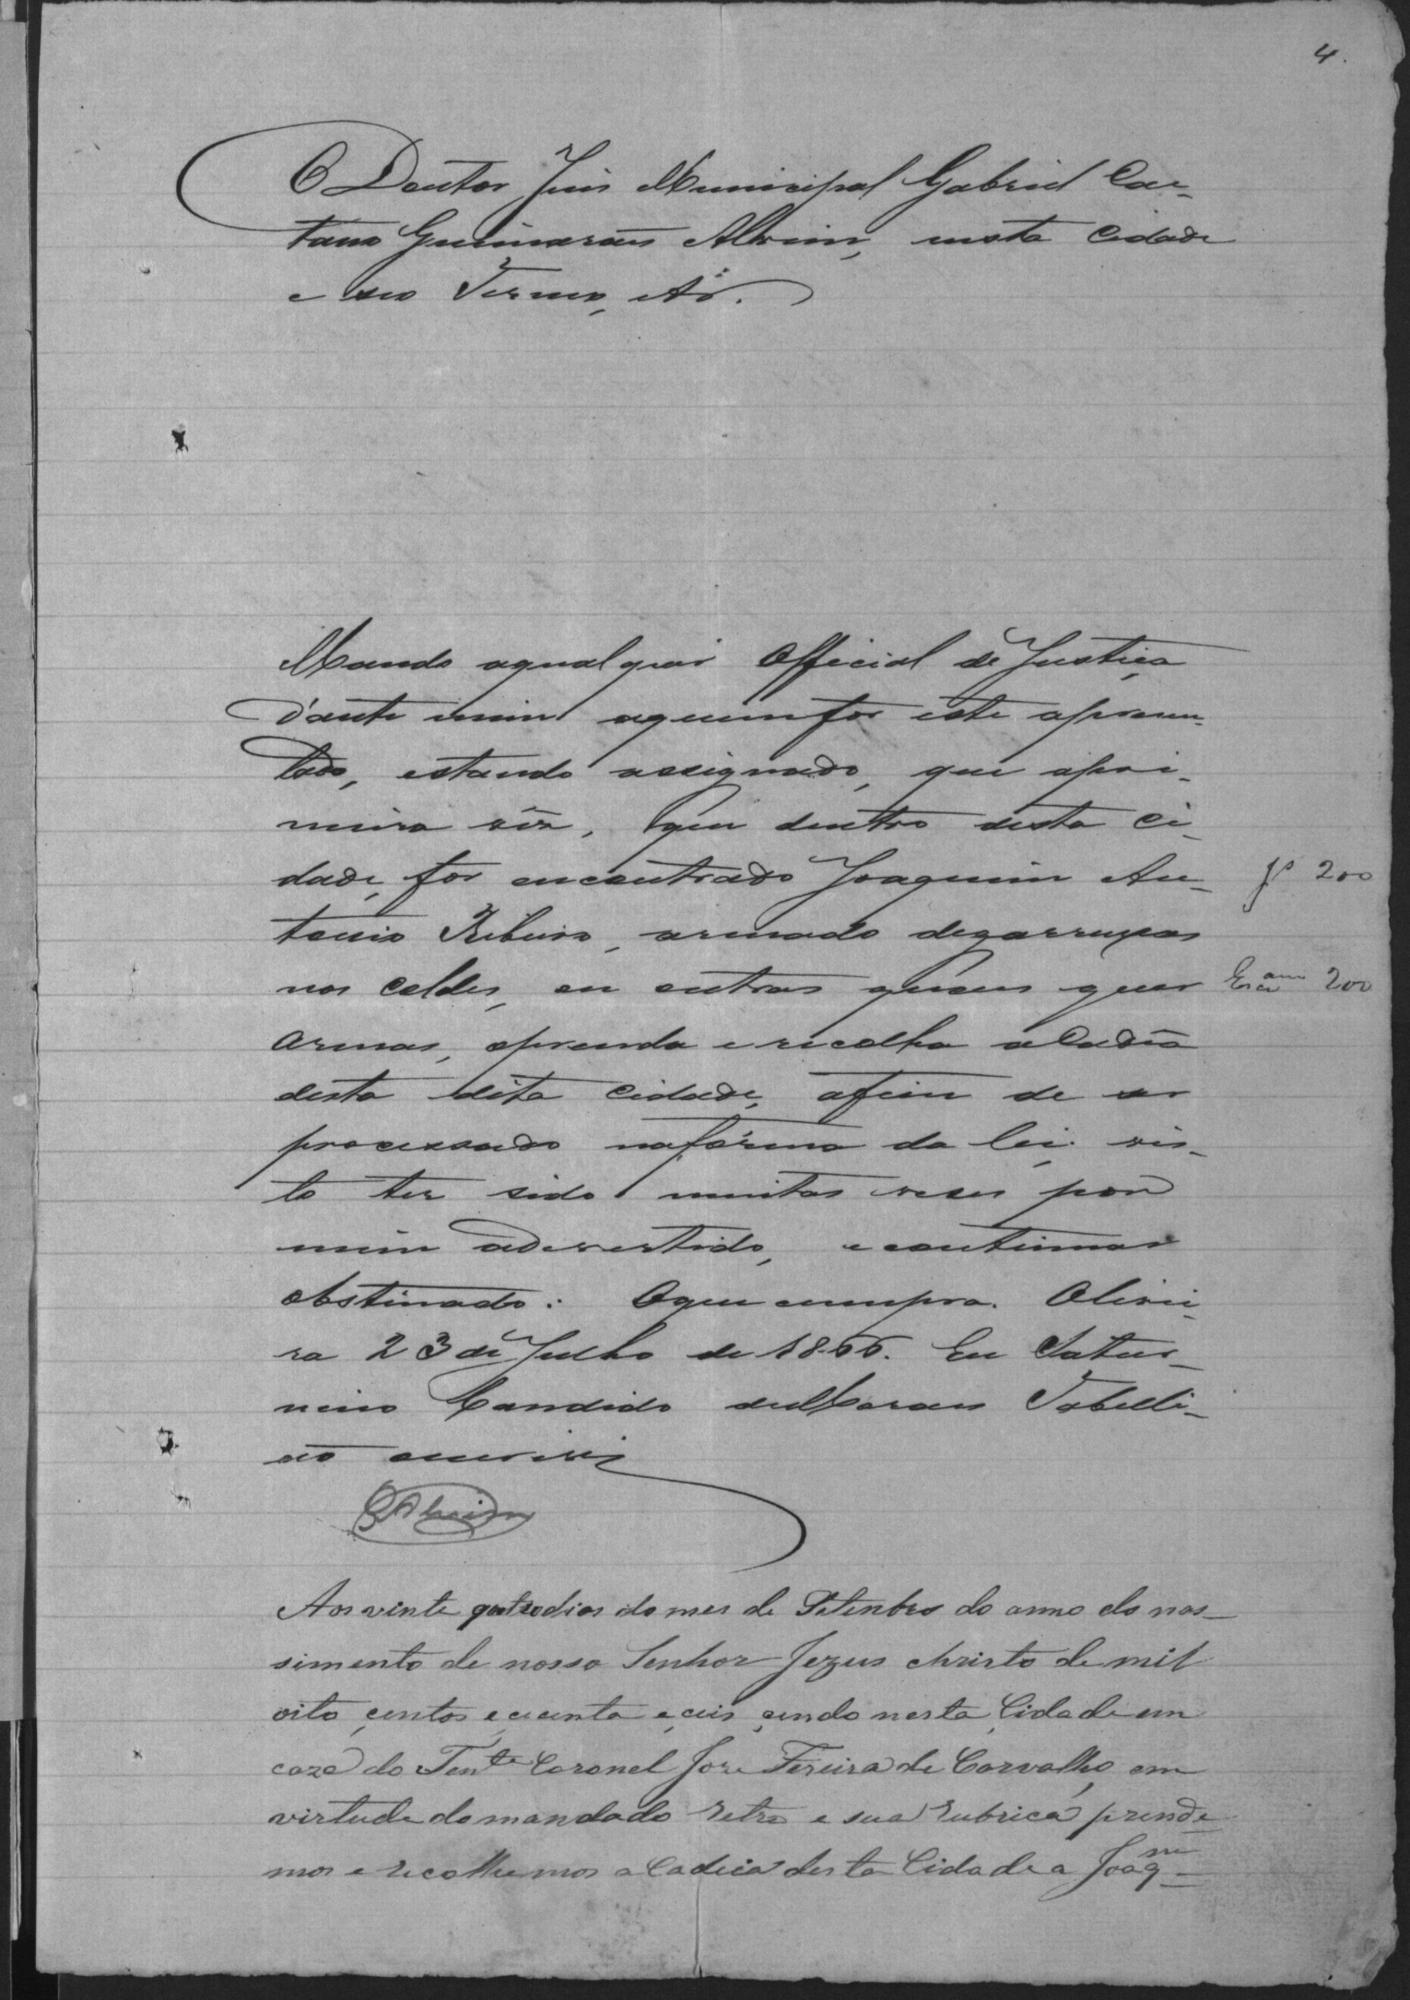 4.
O Doutor Juis Municipal Gabriel Cae-
tano Guimarães Alvim, nesta Cidade
e seo Termo, etc.
Mando aqualquer Official de Justiça
d'ante mim aquem for este aprezen-
tado, estando assignado, que apri-
meira vêz, que dentro desta Ci-
dade, for encontrado Joaquim An-
tonio Ribeiro, armado degarruxas
nos coldes, ou outras quaes quer
armas, aprenda e recolha a Cadêa
desta dita Cidade, afim de ser
processado nafórma da lei, vis-
to ter sido muitas veses por
mim advertido, e continuar
obstinado: Oque cumpra. Olivei-
ra 23 de Julho de 1866. Eu Satur-
nino Candido de Moraes Tabelli-
ão escrivi
GAlvim
Jº 200
Escram 200
Aos vinte quatro dias do mes de Setenbro do anno do nas-
simento de nosso Senhor Jezus christo de mil
oito çentos e çecenta e çeis çendo nesta Cidade em
caza do Tente Coronel Jose Fereira de Carvalho em
virtude do mandado retro e sua rubrica prende-
mos e recolhemos a Cadeia desta Cidade a Joaqm